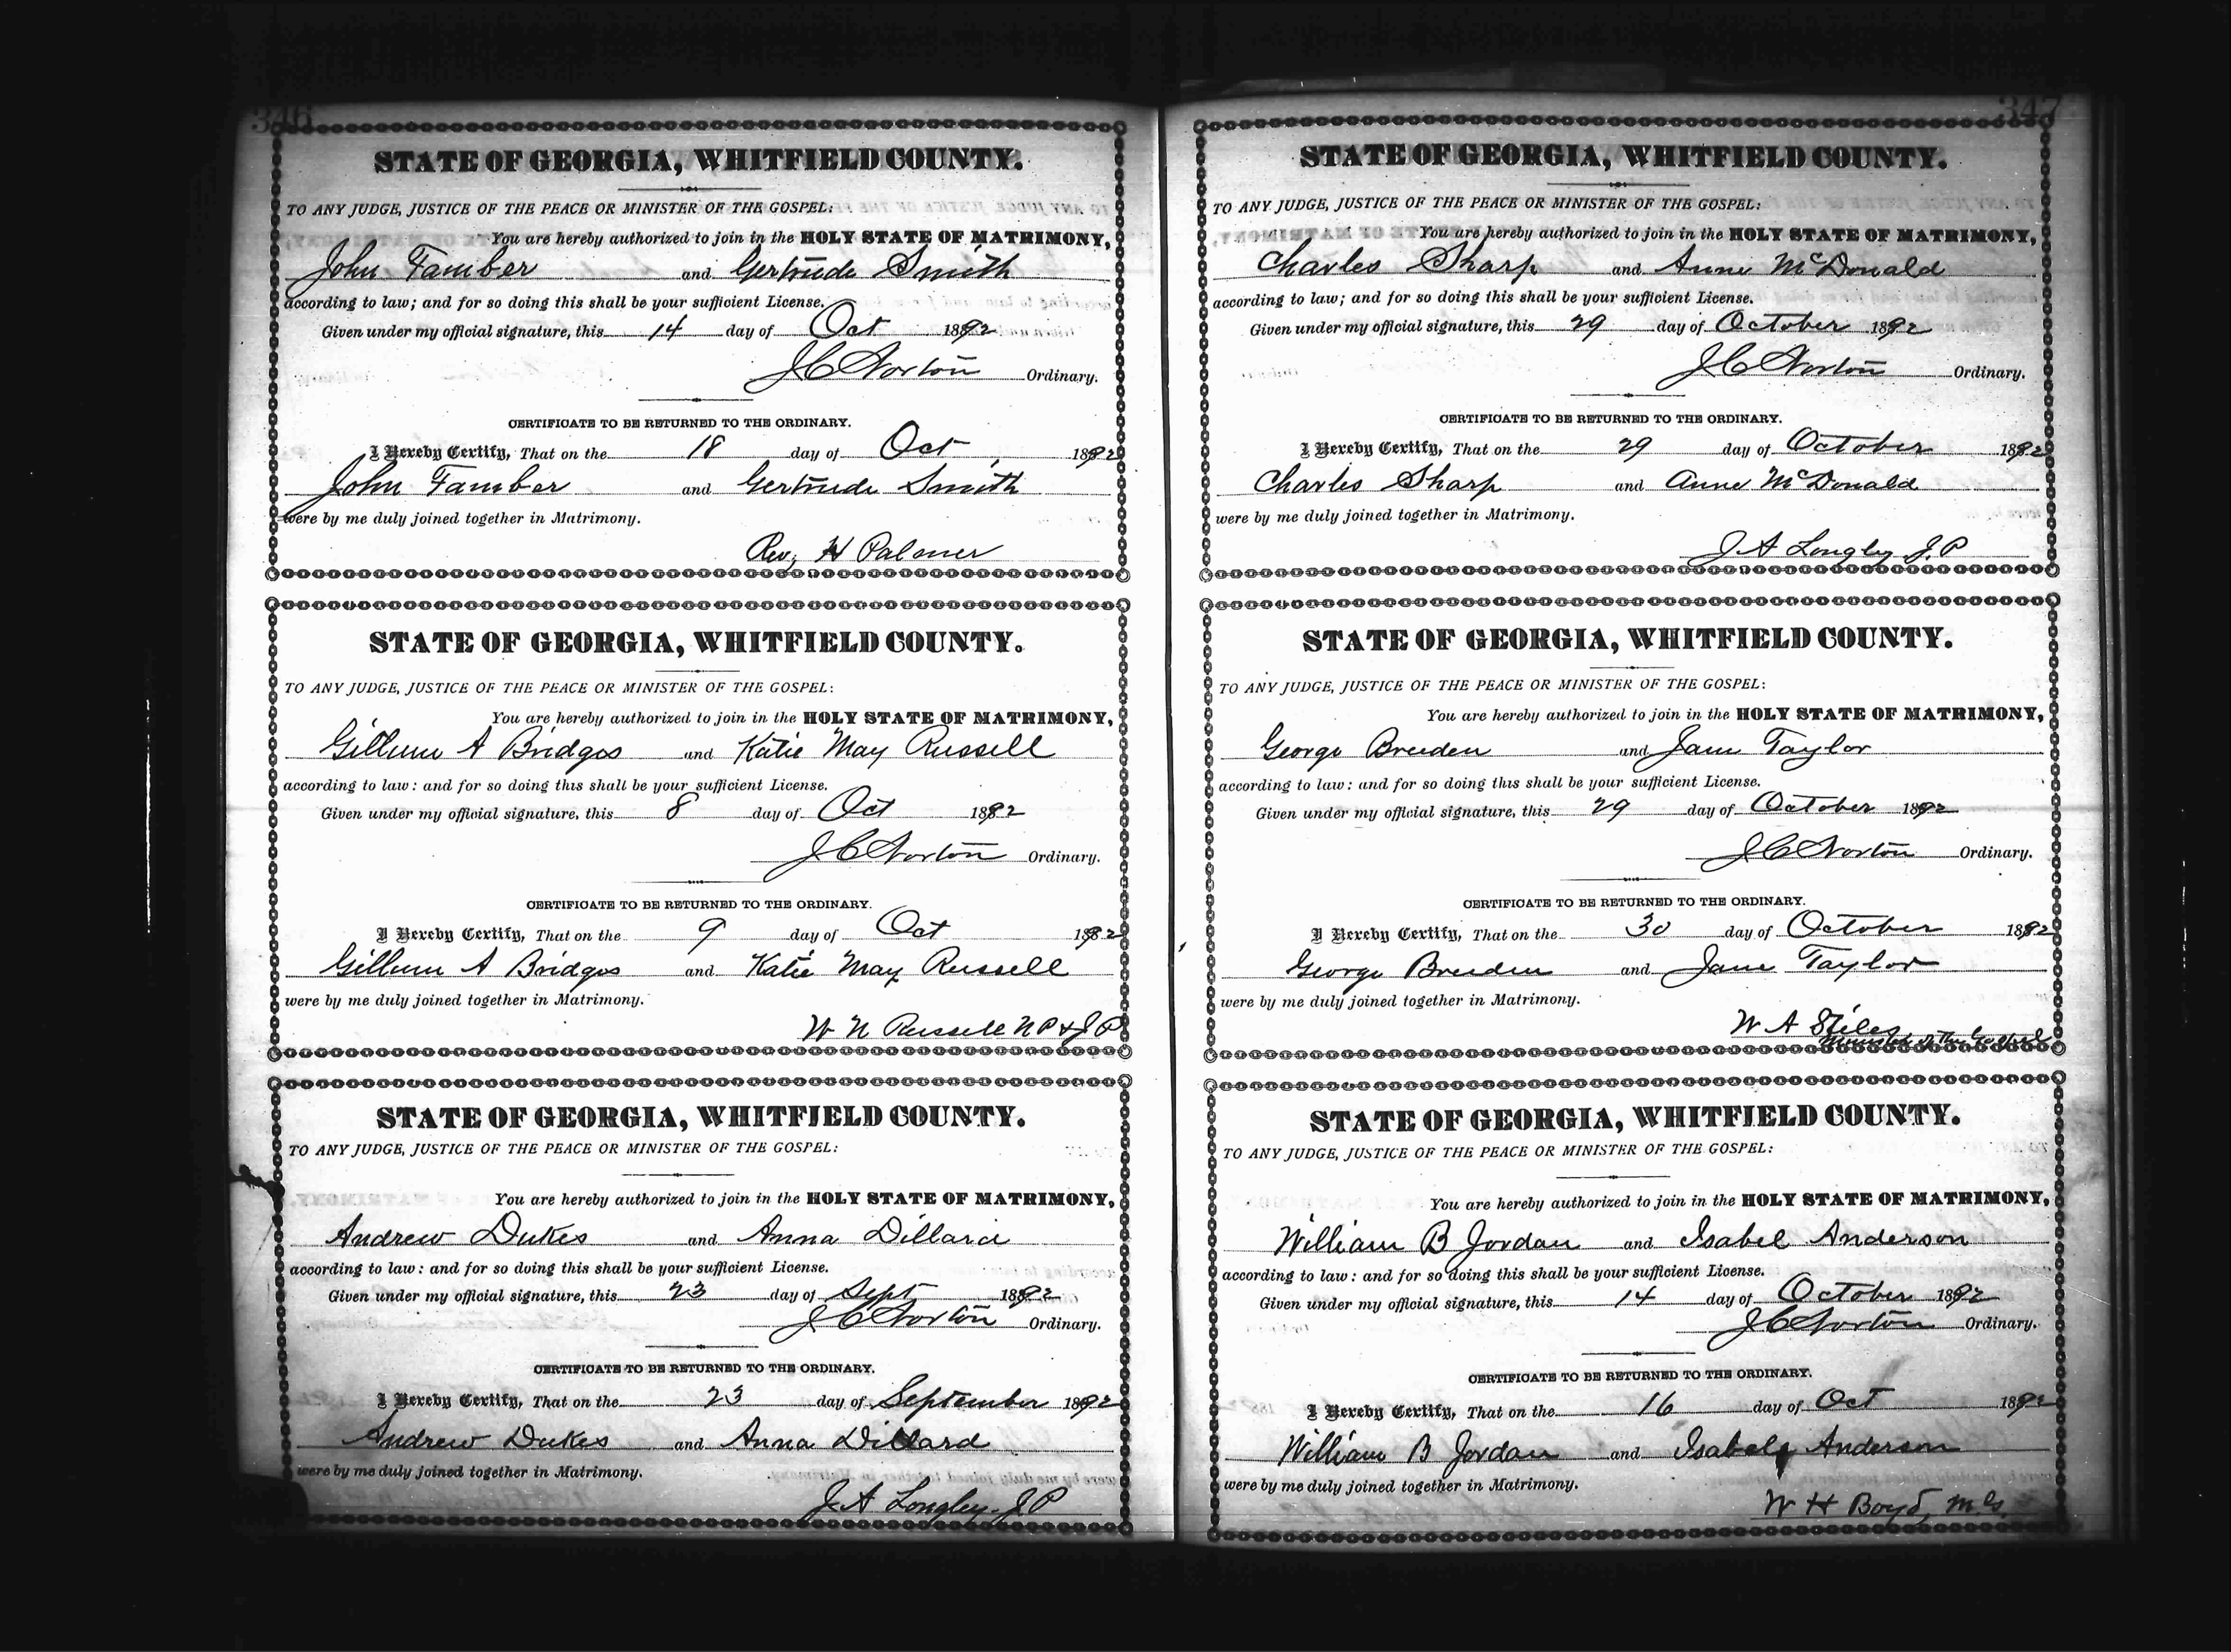 346
STATE OF GEORGIA, WHITFIELD COUNTY.
TO ANY JUDGE, JUSTICE OF THE PEACE OR MINISTER OF THE GOSPEL:
You are hereby authorized to join in the HOLY STATE OF MATRIMONY,
John Tamber and Gertrude Smith
according to law; and for so doing this shall be your sufficient License.
Given under my official signature, this 14 day of Oct 1892
J C Norton Ordinary.
CERTIFICATE TO BE RETURNED TO THE ORDINARY.
I Hereby Certify, That on the 18 day of Oct, 1892
John Tamber and Gertrude Smith
were by me duly joined together in Matrimony.
Rev, H Palmer
STATE OF GEORGIA, WHITFIELD COUNTY.
TO ANY JUDGE, JUSTICE OF THE PEACE OR MINISTER OF THE GOSPEL:
You are hereby authorized to join in the HOLY STATE OF MATRIMONY,
Gillum A Bridges and Katie May Russell
according to law: and for so doing this shall be your sufficient License.
Given under my official signature, this 8 day of Oct 1892
J C Norton Ordinary.
CERTIFICATE TO BE RETURNED TO THE ORDINARY.
I Hereby Certify, That on the 9 day of Oct 1892
Gillum A Bridges and Katie May Russell
were by me duly joined together in Matrimony.
W N Russell N P & J P
STATE OF GEORGIA, WHITFIELD COUNTY.
TO ANY JUDGE, JUSTICE OF THE PEACE OR MINISTER OF THE GOSPEL:
You are hereby authorized to join in the HOLY STATE OF MATRIMONY,
Andrew Dukes and Anna Dillard
according to law: and for so doing this shall be your sufficient License.
Given under my official signature, this 23 day of Sept 1892
J C Norton Ordinary.
CERTIFICATE TO BE RETURNED TO THE ORDINARY.
I Hereby Certify, That on the 23 day of September 1892
Andrew Dukes and Anna Dillard
were by me duly joined together in Matrimony.
J A Longley J P
347
STATE OF GEORGIA, WHITFIELD COUNTY.
TO ANY JUDGE, JUSTICE OF THE PEACE OR MINISTER OF THE GOSPEL:
You are hereby authorized to join in the HOLY STATE OF MATRIMONY,
Charles Sharp and Anne McDonald
according to law; and for so doing this shall be your sufficient License.
Given under my official signature, this 29 day of October 1892
J C Norton Ordinary.
CERTIFICATE TO BE RETURNED TO THE ORDINARY.
I Hereby Certify, That on the 29 day of October 1892
Charles Sharp and Anne McDonald
were by me duly joined together in Matrimony.
J A Longley J. P
STATE OF GEORGIA, WHITFIELD COUNTY.
TO ANY JUDGE, JUSTICE OF THE PEACE OR MINISTER OF THE GOSPEL:
You are hereby authorized to join in the HOLY STATE OF MATRIMONY,
George Breeden and Jane Taylor
according to law: and for so doing this shall be your sufficient License.
Given under my official signature, this 29 day of October 1892
J C Norton Ordinary.
CERTIFICATE TO BE RETURNED TO THE ORDINARY.
I Hereby Certify, That on the 30 day of October 1892
George Breeden and Jane Taylor
were by me duly joined together in Matrimony.
W A Stiles
Minister of the Gospel
STATE OF GEORGIA, WHITFIELD COUNTY.
TO ANY JUDGE, JUSTICE OF THE PEACE OR MINISTER OF THE GOSPEL:
You are hereby authorized to join in the HOLY STATE OF MATRIMONY,
William B Jordan and Isabel Anderson
according to law: and for so doing this shall be your sufficient License.
Given under my official signature, this 14 day of October 1892
J C Norton Ordinary.
CERTIFICATE TO BE RETURNED TO THE ORDINARY.
I Hereby Certify, That on the 16 day of Oct 1892
William B Jordan and Isabel Anderson
were by me duly joined together in Matrimony.
W H Boyd, M. G.